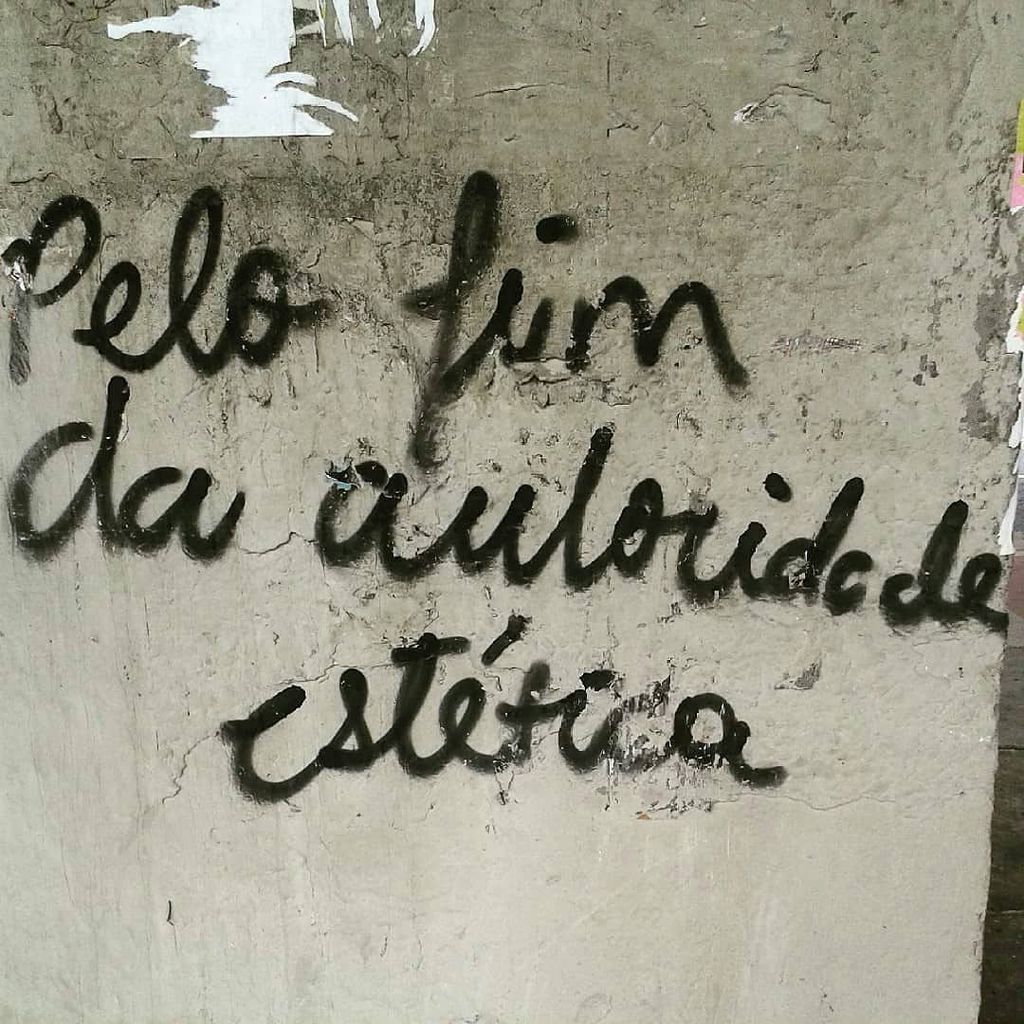 Pelo fim
da autoridade
estética